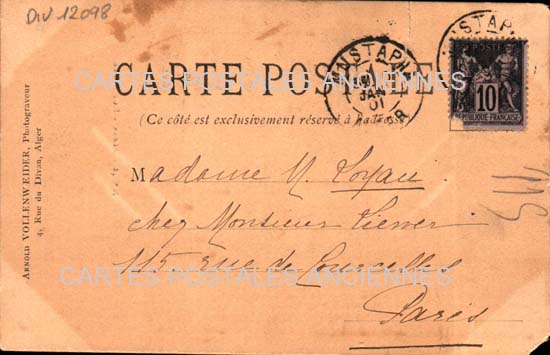 DIV 12098
CARTE POSTALE
CARTES POSTALES ANCIENNES
(Ce côté est exclusivement réservé à l'adresse)
MUSTAPHA
JAN
01
ALGER
MUSTAPHA
POSTE
10
REPUBLIQUE FRANÇAISE
Madame M. Loyau
chez Monsieur
115 rue de Courcelles
CARTES POSTALES ANCIENNES
Paris
ARNOLD VOLLENWEIDER, Photograveur
4, Rue du Divan, Alger